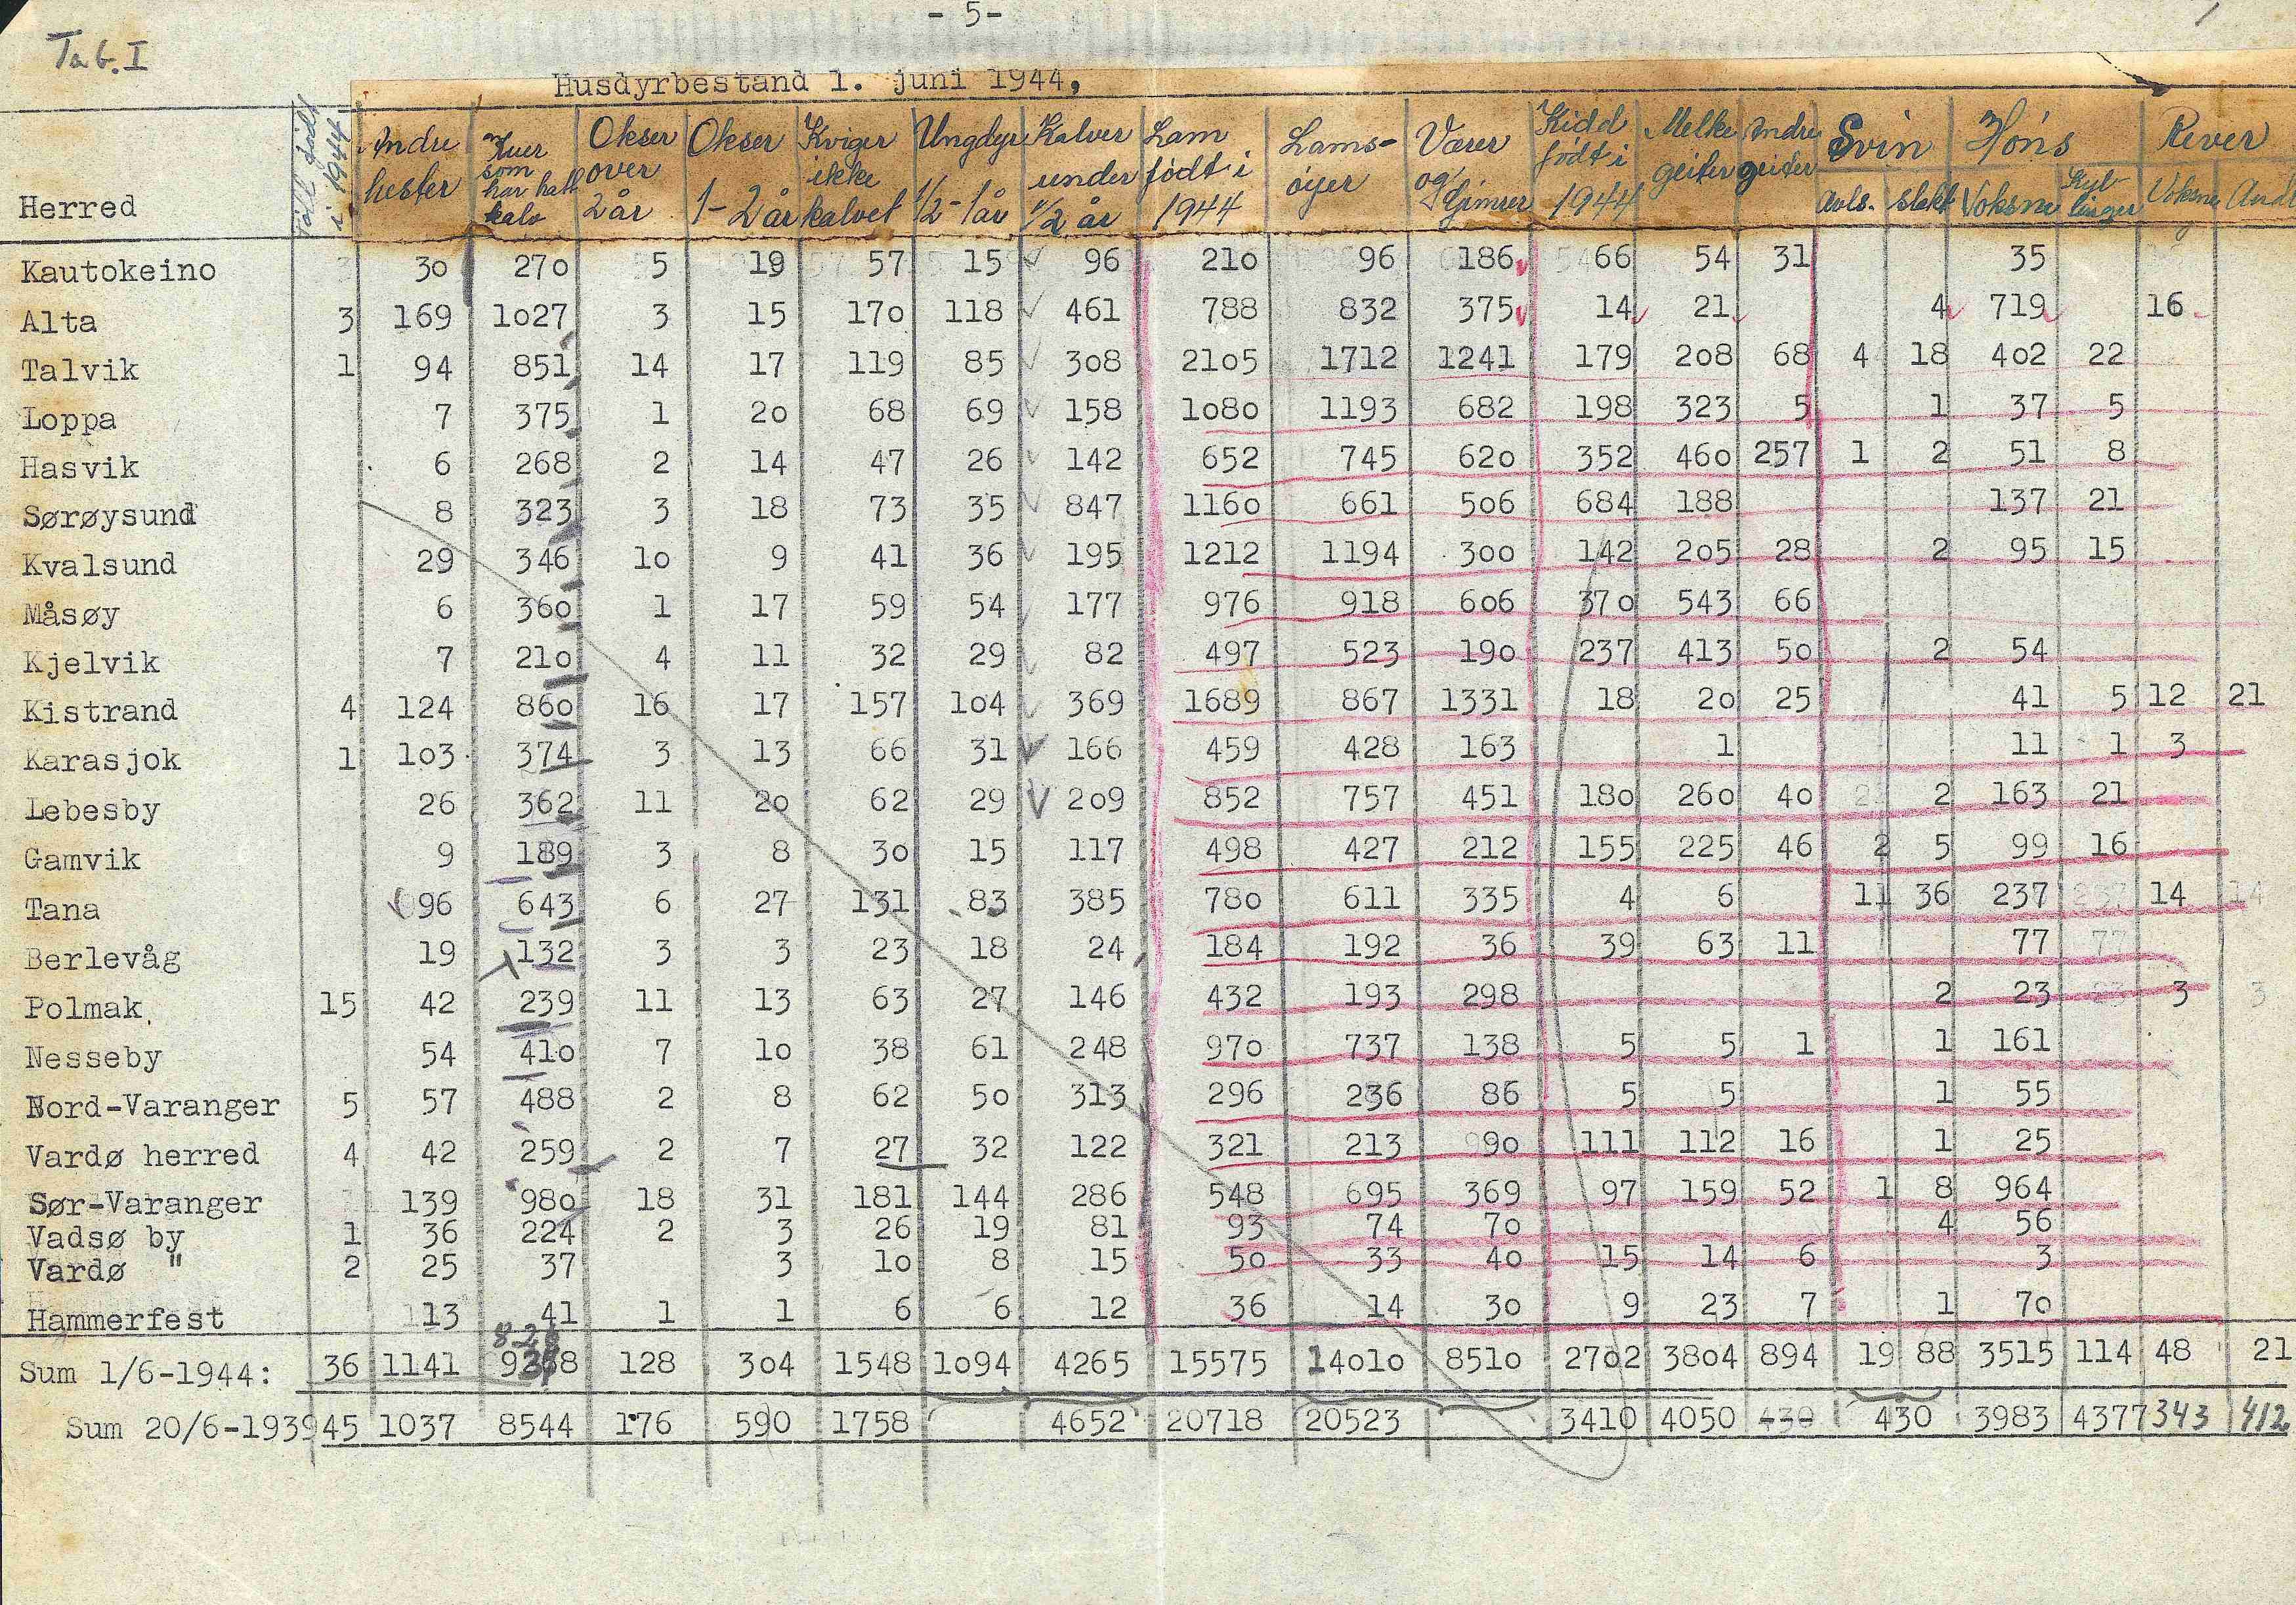 - 5 -
Tab. I
Husdyrbestand 1. juni 1944,
Herred | Föll født i 1944 | Andre hester | Kuer som har hatt kalv | Okser over 2 år | Okser 1-2 år | Kviger ikke kalvet | Ungdyr 1/2-1 år | Kalver under 1/2 år | Lam født i 1944 | Lams-øyer | Værer og Gimrer | Kidd født i 1944 | Melke geiter | Andre geiter | Svin Avls. | slakt | Höns Voksne | Kyllinger | Rever Voksne | Andre
Kautokeino 30 270 5 19 57 15 96 210 96 186 66 54 31 35
Alta 3 169 1027 3 15 170 118 461 788 832 375 14 21 4 719 16
Talvik 1 94 851 14 17 119 85 308 2105 1712 1241 179 208 68 4 18 402 22
Loppa 7 375 1 20 68 69 158 1080 1193 682 198 323 5 1 37 5
Hasvik 6 268 2 14 47 26 142 652 745 620 352 460 257 1 2 51 8
Sørøysund 8 323 3 18 73 35 847 1160 661 506 684 188 137 21
Kvalsund 29 346 10 9 41 36 195 1212 1194 300 142 205 28 2 95 15
Måsøy 6 360 1 17 59 54 177 976 918 606 370 543 66
Kjelvik 7 210 4 11 32 29 82 497 523 190 237 413 50 2 54
Kistrand 4 124 860 16 17 157 104 369 1689 867 1331 18 20 25 41 5 12 21
Karasjok 1 103 374 3 13 66 31 166 459 428 163 1 11 1 3
Lebesby 26 362 11 20 62 29 209 852 757 451 180 260 40 2 163 21
Gamvik 9 189 3 8 30 15 117 498 427 212 155 225 46 2 5 99 16
Tana 96 643 6 27 131 83 385 780 611 335 4 6 11 36 237 14
Berlevåg 19 132 3 3 23 18 24 184 192 36 39 63 11 77
Polmak 15 42 239 11 13 63 27 146 432 193 298 2 23 3
Nesseby 54 410 7 10 38 61 248 970 737 138 5 5 1 1 161
Nord-Varanger 5 57 488 2 8 62 50 313 296 236 86 5 5 1 55
Vardø herred 4 42 259 2 7 27 32 122 321 213 90 111 112 16 1 25
Sør-Varanger 139 980 18 31 181 144 286 548 695 369 97 159 52 1 8 964
Vadsø by 1 36 224 2 3 26 19 81 93 74 70 4 56
Vardø " 2 25 37 3 10 8 15 50 33 40 15 14 6 3
Hammerfest 13 41 1 1 6 6 12 36 14 30 9 23 7 1 70
Sum 1/6-1944: 36 1141 128 304 1548 1094 4265 15575 14010 8510 2702 3804 894 19 88 3515 114 48 21
Sum 20/6-1939 45 1037 8544 176 590 1758 4652 20718 20523 3410 4050 430 430 3983 4377 343 412